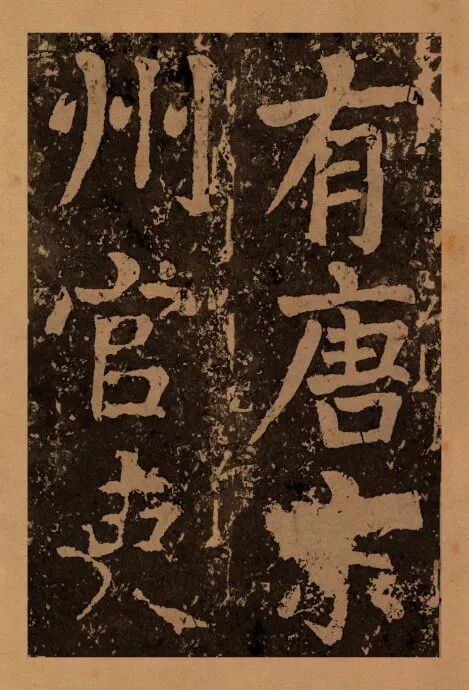 有唐宋
州官吏